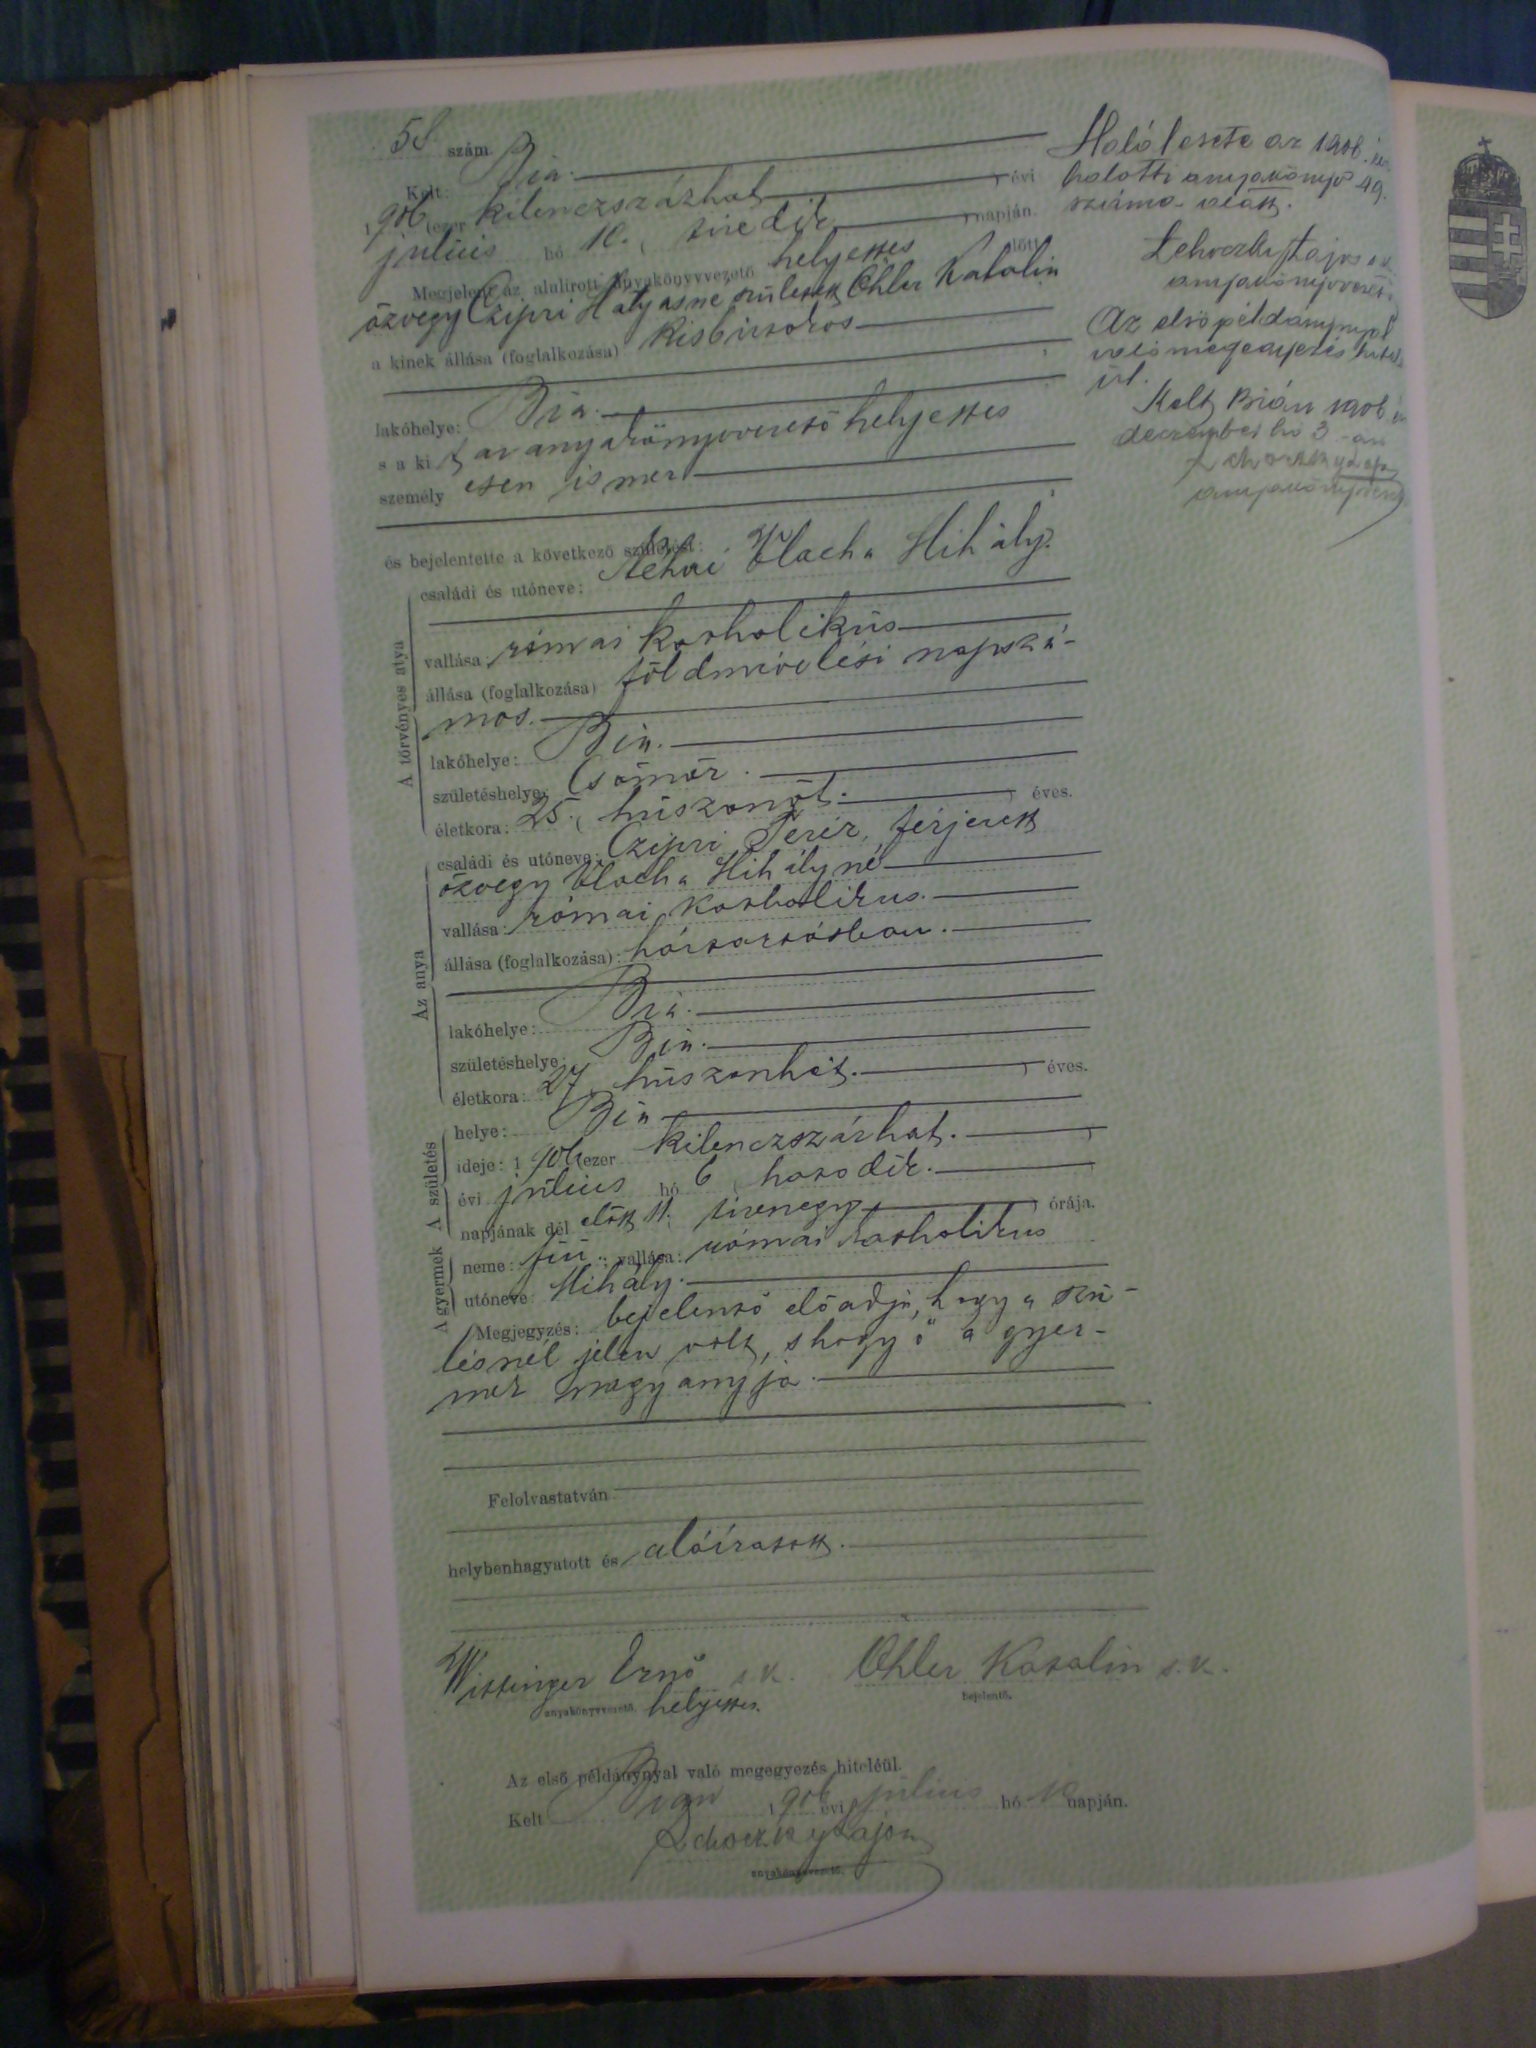 58 szám
Kelt: Bia.
1906 (ezer kilenczszázhat, évi
julius hó 10. ( tizedik ) napján.
Megjelent az alulirott anyakönyvvezető helyettes előtt
özvegy Czipri Mátyásné született Öhler Katalin
a kinek állása (foglalkozása) kisbirtokos
lakóhelye: Bia.
s a kit az anyakönyvvezető helyettes
személyesen ismer
és bejelentette a következő születést:
A törvényes atya
családi és utóneve: Néhai Vlacha Mihály.
vallása: római katholikus
állása (foglalkozása) földmivelési napszá-
mos.
lakóhelye: Bia.
születéshelye: Csömör.
életkora: 25. ( huszonöt. ) éves.
Az anya
családi és utóneve: Czipri Teréz, férjezett
özvegy Vlacha Mihályné
vallása: római katholikus.
állása (foglalkozása): háztartásban.
lakóhelye: Bia.
születéshelye: Bia.
életkora: 27 huszonhét. ) éves.
A születés
helye: Bia
ideje: 1906 (ezer kilenczszázhat. )
évi julius hó 6 ( hatodik. )
napjának dél előtt 11. ( tizenegy ) órája.
A gyermek
neme: fiú .; vallása: római katholikus
utóneve: Mihály.
Megjegyzés: bejelentő előadja, hogy a szü-
lésnél jelen volt, s hogy ő a gyer-
mek nagyanyja.
Felolvastatván
helybenhagyatott és aláiratott.
Wittinger Ernő s.k. Öhler Katalin s.k.
anyakönyvvezető. helyettes. bejelentő.
Az első példánynyal való megegyezés hiteléül.
Kelt Bián 1906 évi julius hó 10 napján.
Lehoczky Lajos
anyakönyvvezető.
Halálesete az 1906. évi
halotti anyakönyv 49.
száma alatt.
Lehoczky Lajos s.k.
anyakönyvvezető.
Az első példánynyal
való megegyezés hitelé-
ül.
Kelt Bián 1906 évi
december hó 3-án
Lehoczky Lajos
anyakönyvvezető